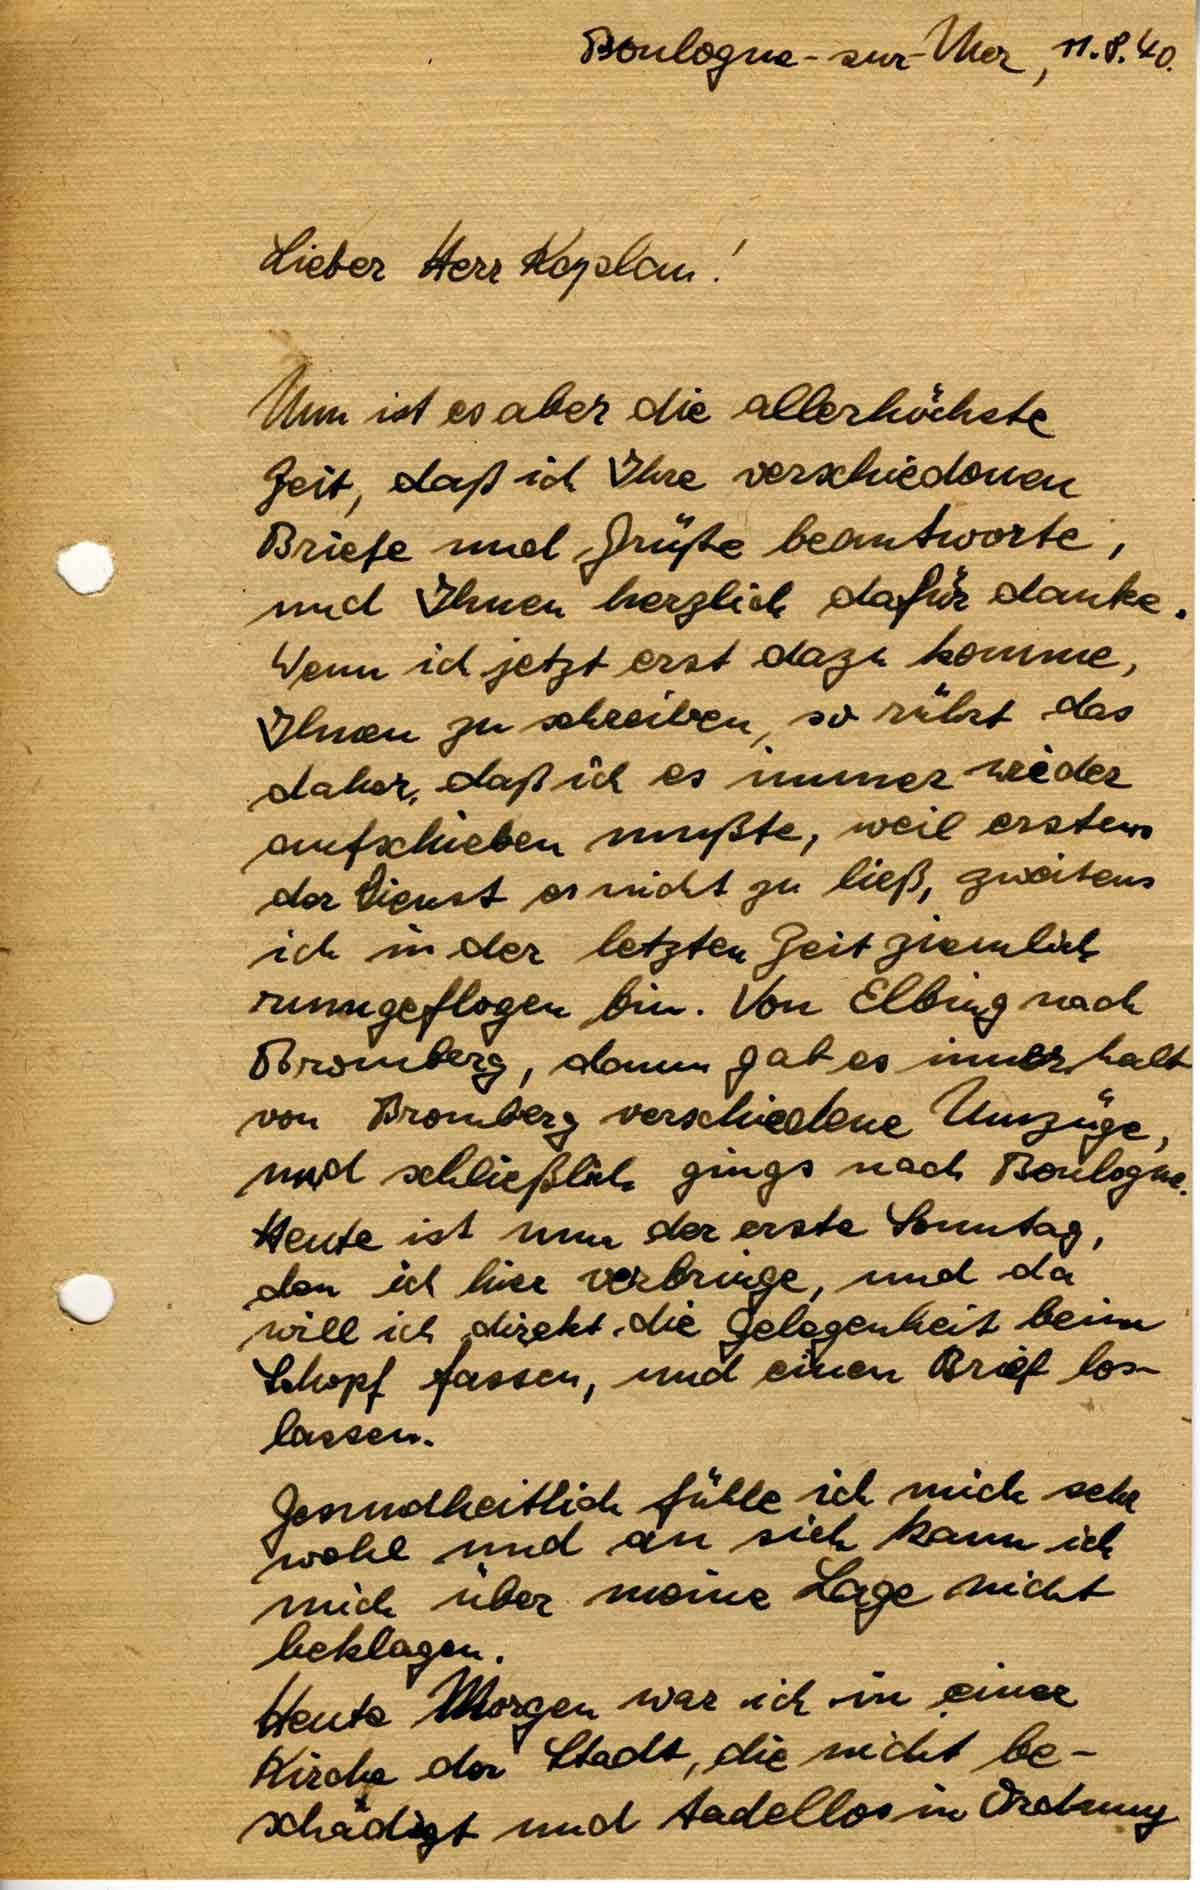 Boulogne-sur-Mer, 11.8.40.
Lieber Herr Kaplan!
Nun ist es aber die allerhöchste
Zeit, daß ich Ihre verschiedenen
Briefe und Grüße beantworte,
und Ihnen herzlich dafür danke.
Wenn ich jetzt erst dazu komme,
Ihnen zu schreiben, so rührt das
daher, daß ich es immer wieder
aufschieben mußte, weil erstens
der Dienst es nicht zu ließ, zweitens
ich in der letzten Zeit ziemlich
rumgeflogen bin. Von Elbing nach
Bromberg, dann gab es innerhalb
von Bromberg verschiedene Umzüge,
und schließlich gings nach Boulogne.
Heute ist nun der erste Sonntag,
den ich hier verbringe, und da
will ich direkt die Gelegenheit beim
Schopf fassen, und einen Brief los-
lassen.
Gesundheitlich fühle ich mich sehr
wohl und an sich kann ich
mich über meine Lage nicht
beklagen.
Heute Morgen war ich in einer
Kirche der Stadt, die nicht be-
schädigt und tadellos in Ordnung